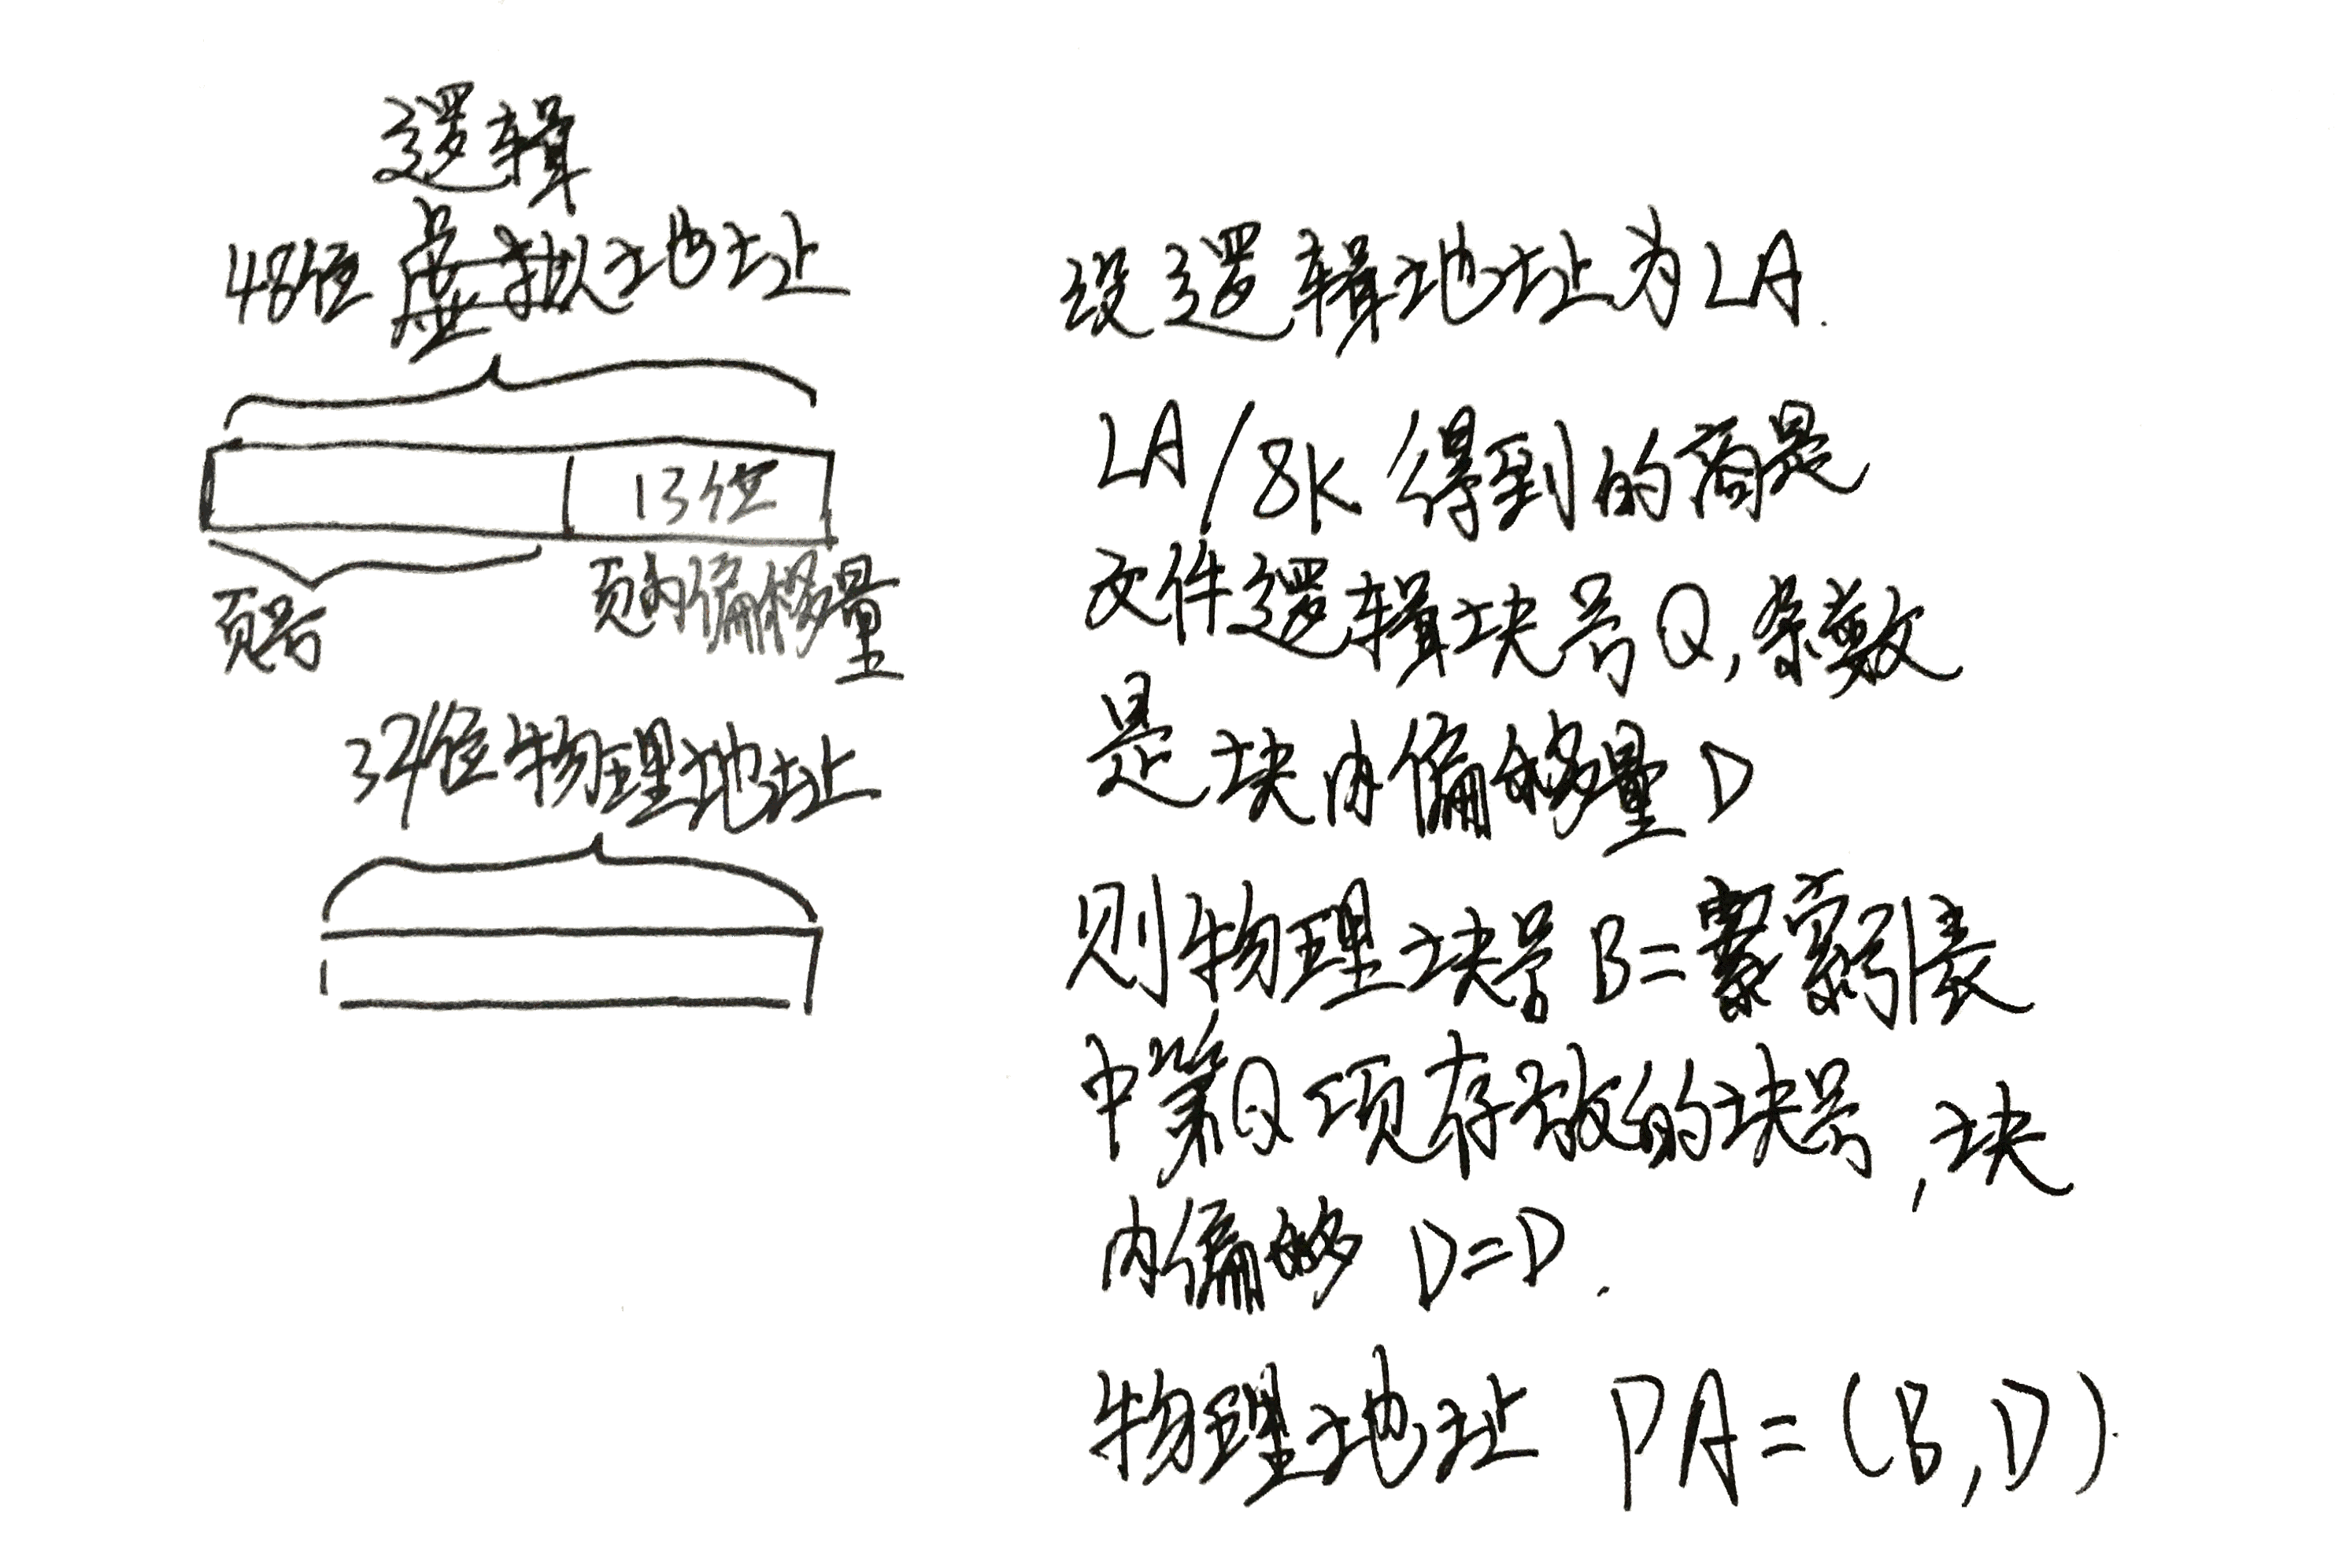 逻辑
48位虚拟地址
13位
页号
页内偏移量
34位物理地址
设逻辑地址为LA.
LA/8K得到的商是
文件逻辑块号Q,余数
是块内偏移量D
则物理块号B=索引表
中第Q项存放的块号,块
内偏移 D=D.
物理地址 PA=(B,D).